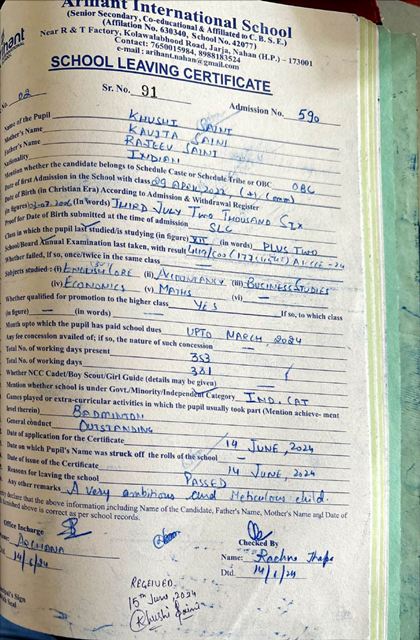 Arihant International School
(Senior Secondary, Co-educational & Affiliated to C. B. S. E.)
(Affiliation No. 630340, School No. 42077)
Near R & T Factory, Kolawalabhood Road, Jarja, Nahan (H.P.) - 173001
Contact: 7650015984, 8988183524
e-mail : arihant.nahan@gmail.com
SCHOOL LEAVING CERTIFICATE
No. 02 Sr. No. 91 Admission No. 590
Name of the Pupil KHUSHI SAINI
Mother's Name KAVITA SAINI
Father's Name RAJEEV SAINI
Nationality INDIAN
Mention whether the candidate belongs to Schedule Caste or Schedule Tribe or OBC OBC
Date of first Admission in the School with class 29 APRIL, 2022 (+1) (comm)
Date of Birth (in Christian Era) According to Admission & Withdrawal Register
(in figures) 03.07.2006 (In Words) THIRD JULY TWO THOUSAND SIX
Proof for Date of Birth submitted at the time of admission SLC
Class in which the pupil last studied/is studying (in figure) XII (in words) PLUS TWO
School/Board Annual Examination last taken, with result AISSCE-24
Whether failed, if so, once/twice in the same class
Subjects studied : (i) ENGLISH CORE (ii) ACCOUNTANCY (iii) BUSINESS STUDIES
(iv) ECONOMICS (v) MATHS (vi) —
Whether qualified for promotion to the higher class YES If so, to which class
(in figure) — (in words) —
Month upto which the pupil has paid school dues UPTO MARCH, 2024
Any fee concession availed of; if so, the nature of such concession —
Total No. of working days present 353
Total No. of working days 381
Whether NCC Cadet/Boy Scout/Girl Guide (details may be given) —
Mention whether school is under Govt./Minority/Independent Category IND. CAT
Games played or extra-curricular activities in which the pupil usually took part (Mention achieve- ment
level therein) BADMINTON
General conduct OUTSTANDING
Date of application for the Certificate 14 JUNE, 2024
Date on which Pupil's Name was struck off the rolls of the school —
Date of issue of the Certificate 14 JUNE, 2024
Reasons for leaving the school PASSED
Any other remarks A very ambitious and Meticulous child.
declare that the above information including Name of the Candidate, Father's Name, Mother's Name and Date of
furnished above is correct as per school records.
Office Incharge Checked By
ARCHANA Name: Rachna Thapa
Dtd. 14/6/24 Dtd. 14/6/24
RECEIVED
15th June, 2024
Khushi Saini